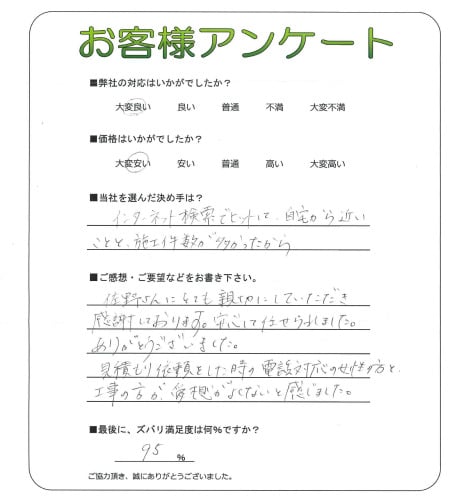 お客様アンケート
■弊社の対応はいかがでしたか？
大変良い　良い　普通　不満　大変不満
■価格はいかがでしたか？
大変安い　安い　普通　高い　大変高い
■当社を選んだ決め手は？
インターネット検索でヒットして、自宅から近い
ことと、施工件数が多かったから
■ご感想・ご要望などをお書き下さい。
佐野さんにとても親切にしていただき
感謝しております。安心して任せられました。
ありがとうございました。
見積もり依頼をした時の電話対応の女性の方と、
工事の方が、愛想がよくないと感じました。
■最後に、ズバリ満足度は何%ですか？
95 %
ご協力頂き、誠にありがとうございました。